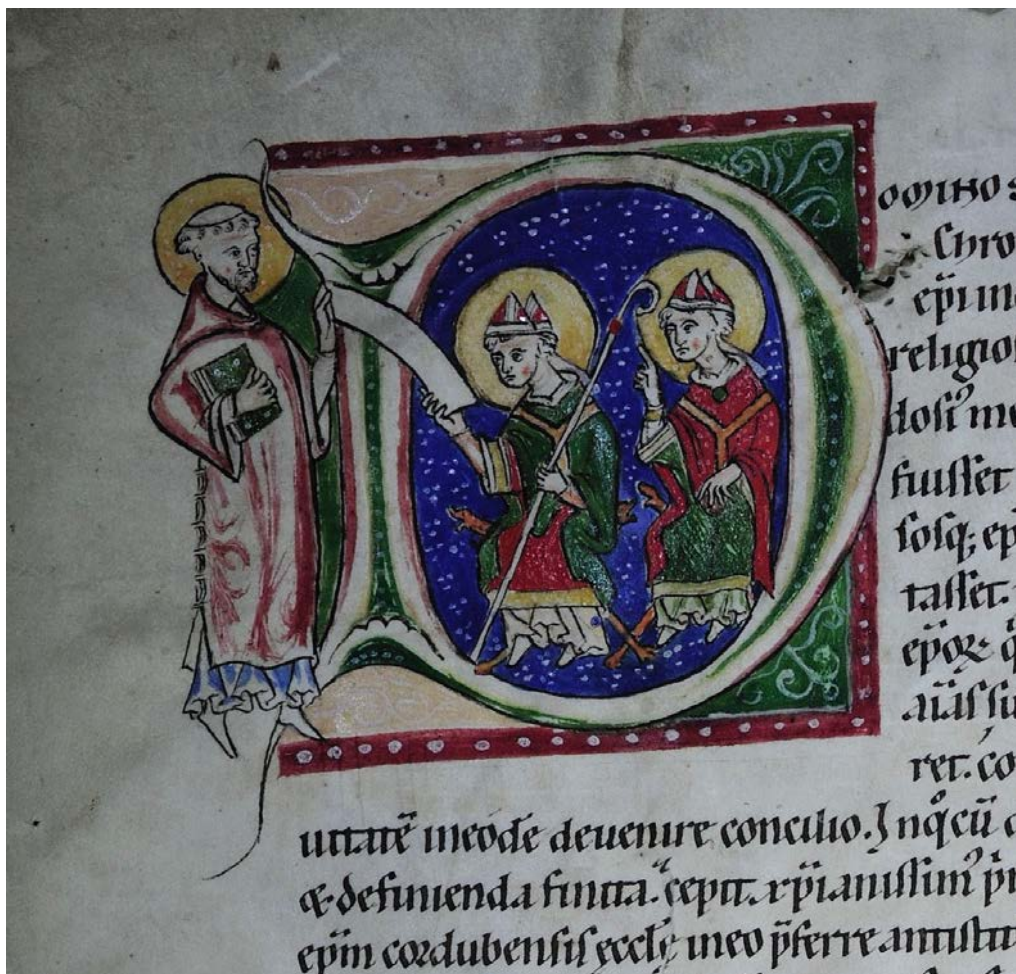 omino s
Chro
ep̄i in
religio
dosiꝰ me
fuisset
sosq; ep
tasset.
ep̄oꝝ q
aīas su
ret. co
uitatē ineodē deuenire concilio. Jn qͦ cū
& definienda finita. cepit xp̄ianissimꝰ p̄
ep̄m cordubensis eccłę ineo p̄ferre antistit